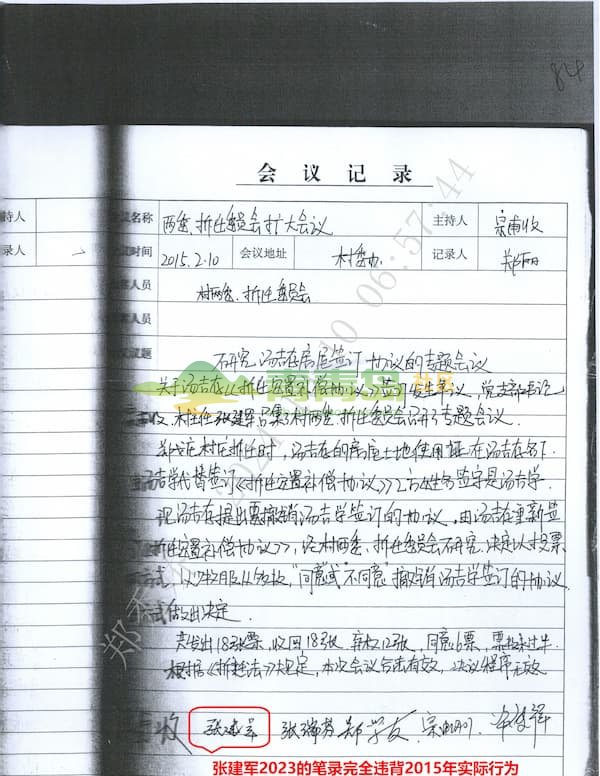 84
会议记录
持人 会议名称 两委、拆迁委员会扩大会议 主持人
录人 议时间 2015.2.10 会议地址 村委办 记录人 郑丽
席人员 村两委、拆迁委员会
人员
议题 研究汤吉存房屋签订协议的专题会议
关于汤吉存《拆迁安置补偿协议》签订发生争议，党支部书记
收、村主任张建军召集了村两委、拆迁委员会召开了专题会议。
郑戈庄村庄拆迁时，汤吉存的房屋土地使用证在汤吉存名下，
汤吉学代替签订《拆迁安置补偿协议》乙方姓名签字是汤吉学
现汤吉存提出要撤销汤吉学签订的协议，由汤吉存重新签
拆迁安置补偿协议》，经村两委、拆迁委员会研究，决定以投票
方式，以少数服从多数，"同意或"不同意"撤销汤吉学签订的协议，
式做出决定。
共发出18张票，收回18张，弃权12张，同意6票，票数未过半
根据《》规定，本次会议合法有效，决议程序无效
收 张建军 张瑞芬 郑学友
张建军2023的笔录完全违背2015年实际行为
06:57:44